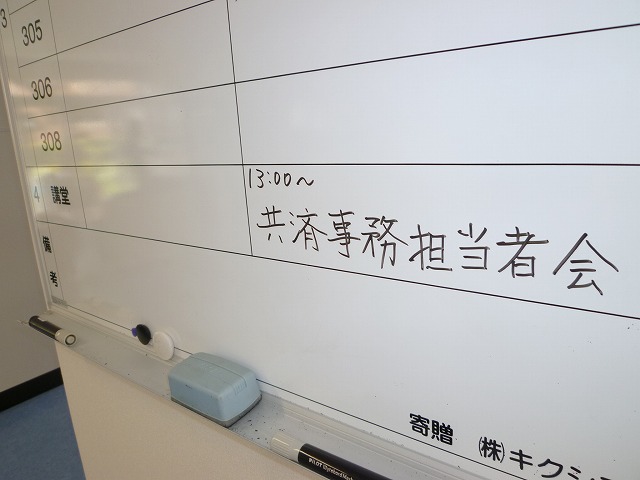 3
305
306
308
4 講堂
13:00~
共済事務担当者会
備考
寄贈 (株)キクシ
PILOT